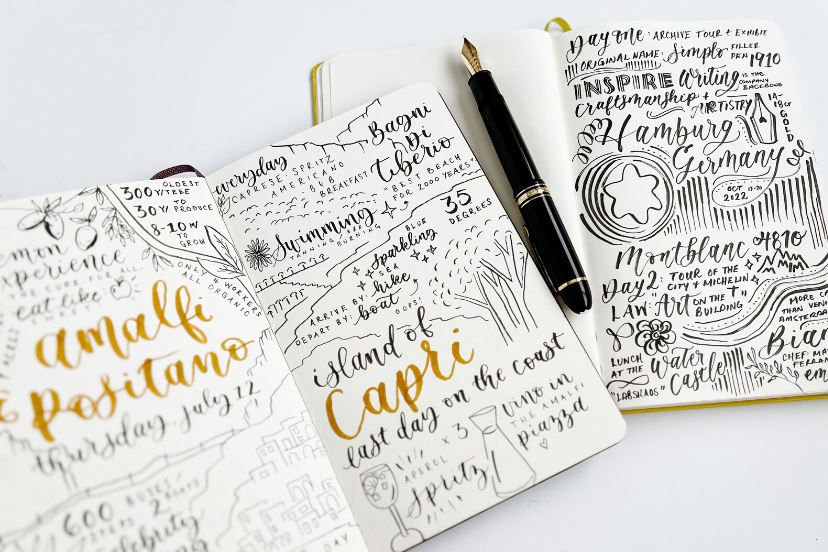 300 OLDEST
Y/TREE
30Y/ TO
PRODUCE
8-10W
TO
GROW
emon
experience
FOR ALL
eat like
ONLY 4 WORKERS
ALL ORGANIC
amalfi
positano
thursday, july 12
600
2
celebrity
everyday
CAPRESE SPRITZ
AMERICANO
BREAKFAST
Bagni
Di
Tiberio
BEST BEACH
FOR 2000 YEARS"
35
DEGREES
Swimming
BLUE
sparkling
SEA
ARRIVE BY: hike
DEPART BY: boat
OOPS!
island of
Capri
last day on the coast
x 3
APEROL
spritz
vino in
THE AMALFI
piazza
DAY
Day one: ARCHIVE TOUR + EXHIBIT
ORIGINAL NAME: Simplo FILLER
PEN 1910
INSPIRE Writing IS THE
COMPANY
BACKBONE
Craftsmanship + ARTISTRY
14-
18CT
GOLD
Hamburg
Germany
OCT
2022
Montblanc 4810
Day 2: TOUR OF THE
CITY & MICHELIN
LAW: "Art ON THE
BUILDING"
MORE
THAN
LUNCH
AT THE Water
Castle
"LABSKAUS"
CHEF: